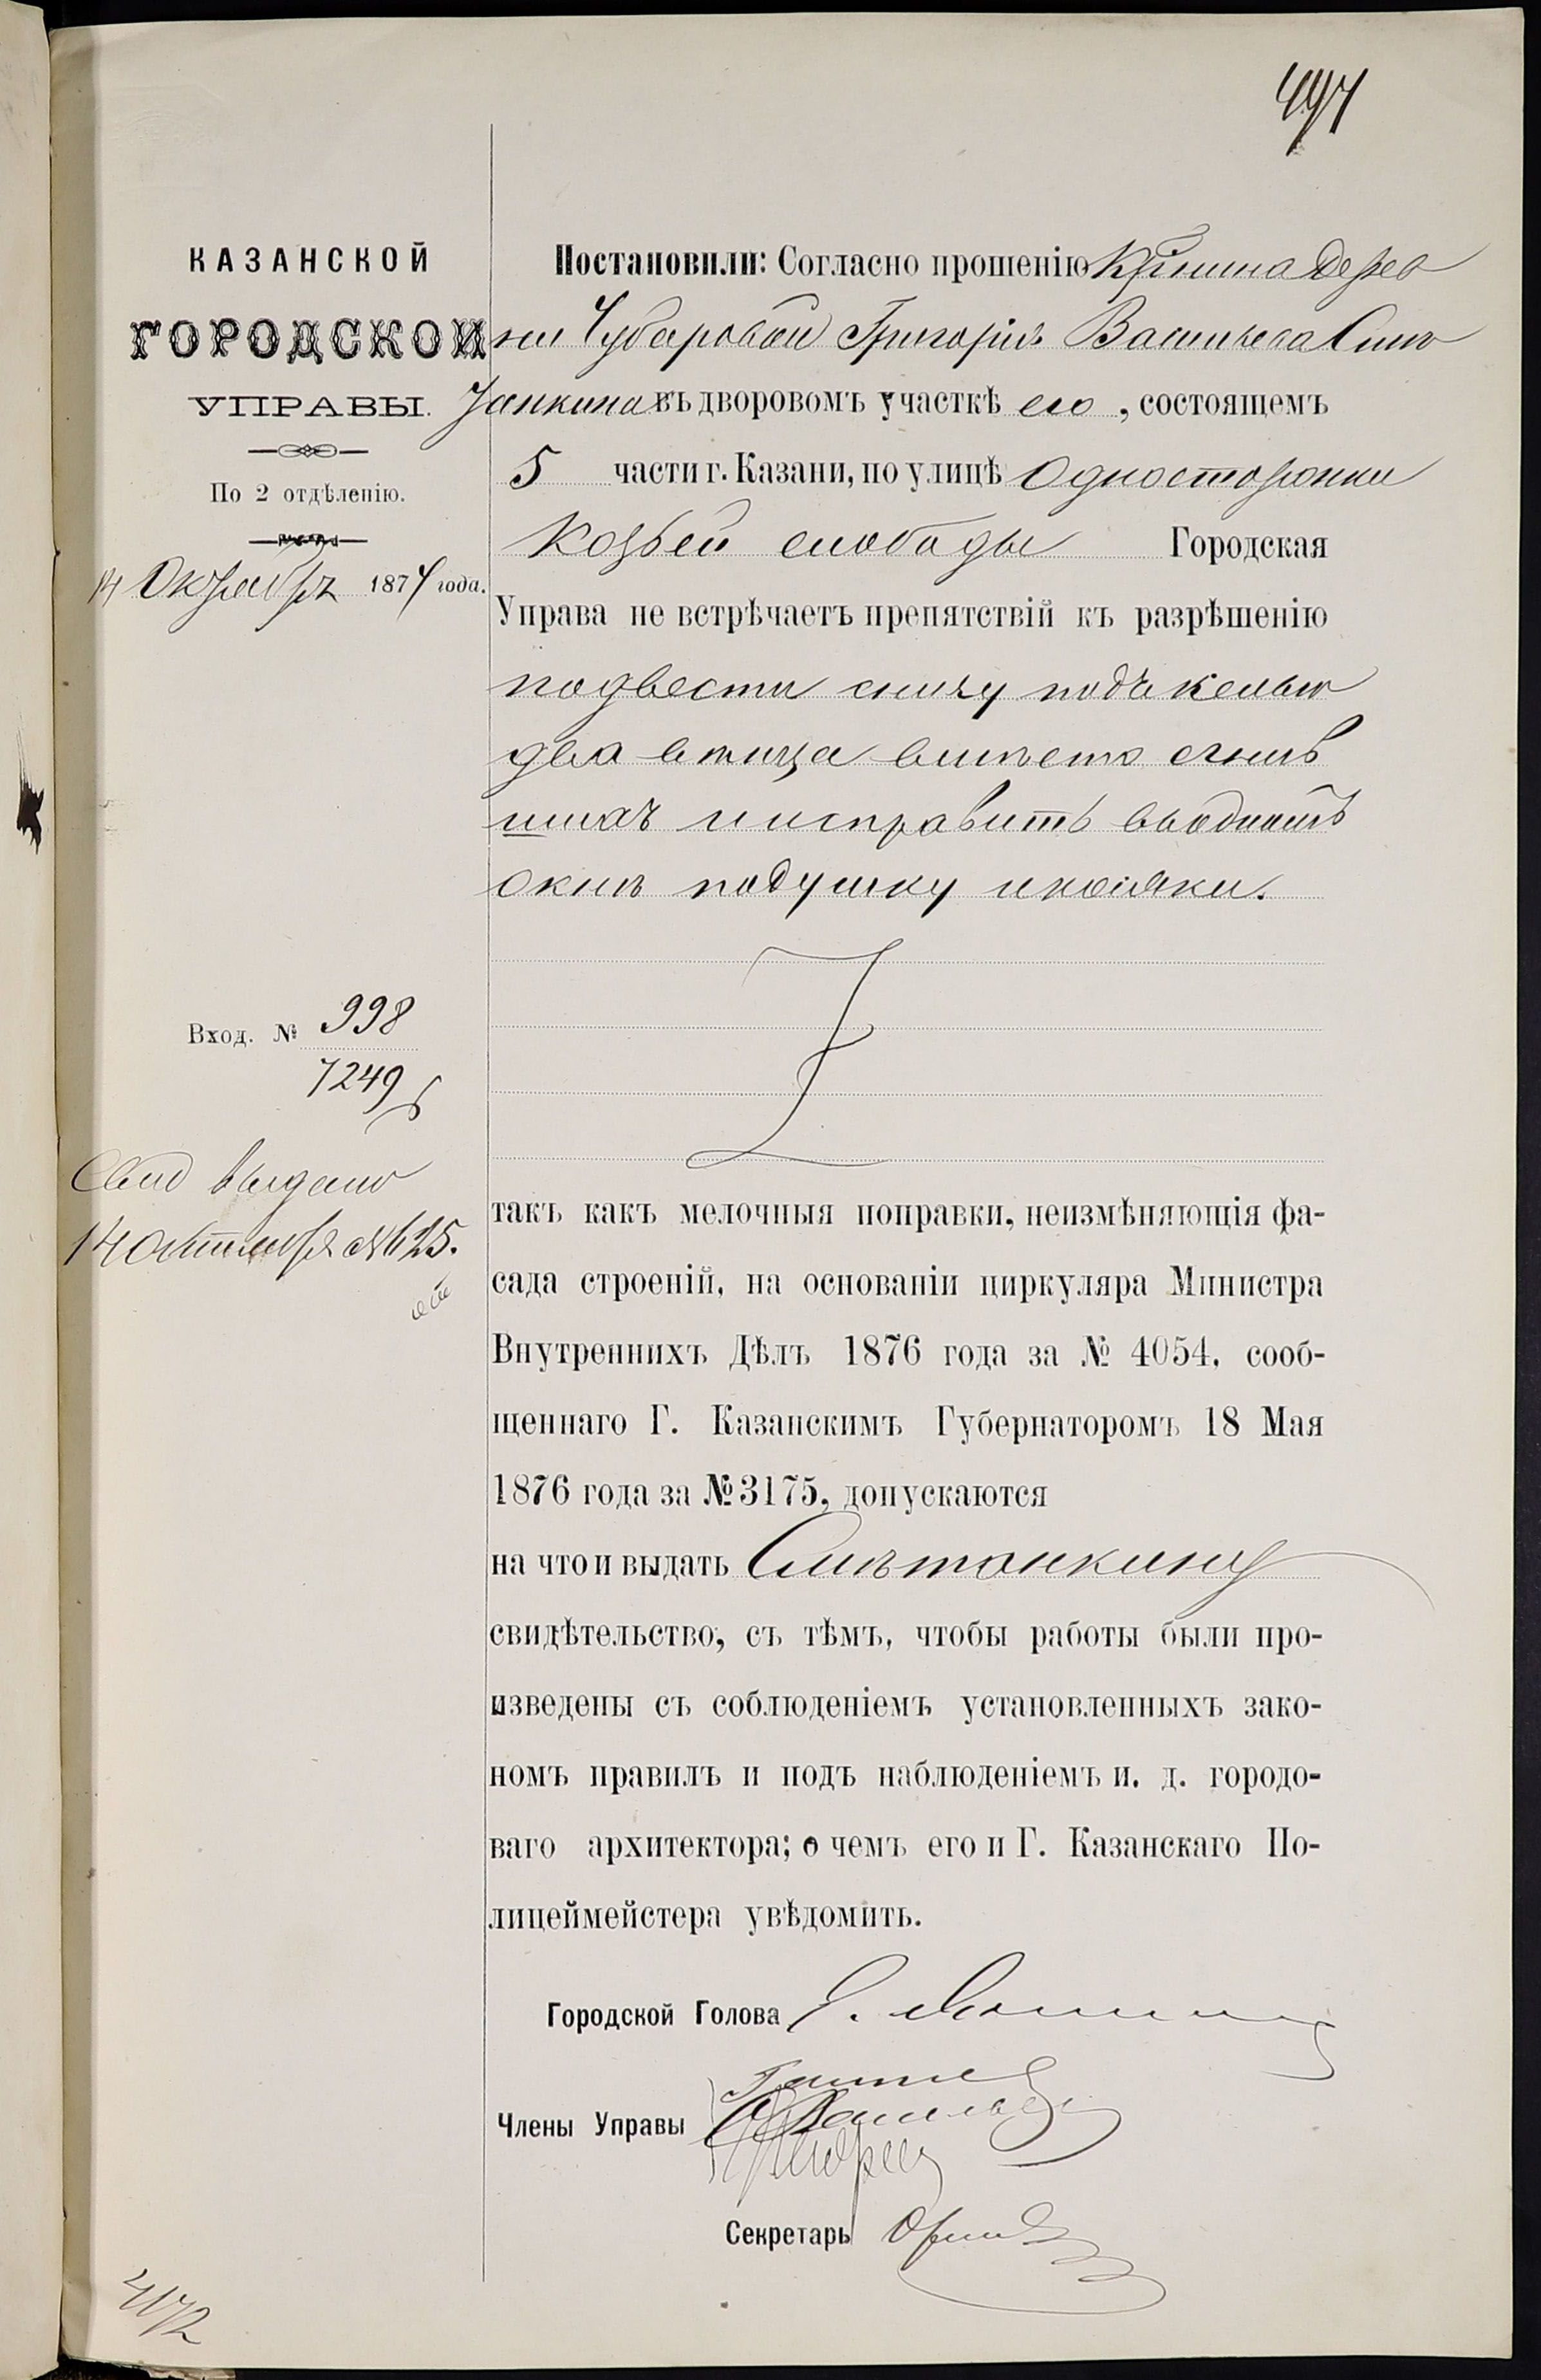 КАЗАНСКОЙ
ГОРОДСКОЙ
УПРАВЫ.
По 2 отдѣленію.
14 Октября 1877 года.
Вход. № 998
7249
Свид выдано
14 октября № 625.
Постановили: Согласно прошенію Крестьянина дерев
ни Чубаровой Григорія Васильева Смѣ
танкина въ дворовомъ участкѣ его, состоящемъ
5 части г. Казани, по улицѣ Односторонки
Козьей слободы Городская
Управа не встрѣчаетъ препятствій къ разрѣшенію
подвести снизу подъ келью
два вѣнца вмѣсто сгнив
шихъ и исправить въ одномъ
окнѣ подушку и косяки.
такъ какъ мелочныя поправки, неизмѣняющія фа-
сада строеній, на основаніи циркуляра Министра
Внутреннихъ Дѣлъ 1876 года за № 4054, сооб-
щеннаго Г. Казанскимъ Губернаторомъ 18 Мая
1876 года за № 3175, допускаются
на что и выдать Смѣтанкину
свидѣтельство, съ тѣмъ, чтобы работы были про-
изведены съ соблюденіемъ установленныхъ зако-
номъ правилъ и подъ наблюденіемъ и. д. городо-
ваго архитектора; о чемъ его и Г. Казанскаго По-
лицеймейстера увѣдомить.
Городской Голова
Члены Управы
Секретарь